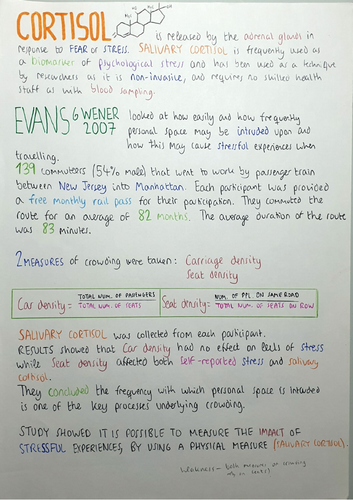 CORTISOL is released by the adrenal glands in
response to FEAR or STRESS. SALIVARY CORTISOL is frequently used as
a biomarker of psychological stress and has been used as a technique
by researchers as it is non-invasive, and requires no skilled health
staff as with blood sampling.
EVANS & WENER 2007
looked at how easily and how frequently
personal space may be intruded upon and
how this may cause stressful experiences when
travelling.
139 commuters (54% male) that went to work by passenger train
between New Jersey into Manhattan. Each participant was provided
a free monthly rail pass for their participation. They commuted the
route for an average of 82 months. The average duration of the route
was 83 minutes.
2 MEASURES of crowding were taken: Carriage density
Seat density
Car density = TOTAL NUM. OF PASSENGERS
TOTAL NUM. OF SEATS
Seat density = NUM. OF PPL ON SAME ROAD
TOTAL NUM. OF SEATS ON ROW
SALIVARY CORTISOL was collected from each participant.
RESULTS showed that Car density had no effect on levels of stress
while Seat density affected both self-reported stress and salivary
They concluded the frequency with which personal space is intruded
is one of the key processes underlying crowding.
STUDY SHOWED IT IS POSSIBLE TO MEASURE THE IMPACT OF
STRESSFUL EXPERIENCES, BY USING A PHYSICAL MEASURE (SALIVARY CORTISOL).
weakness - both measures of crowding